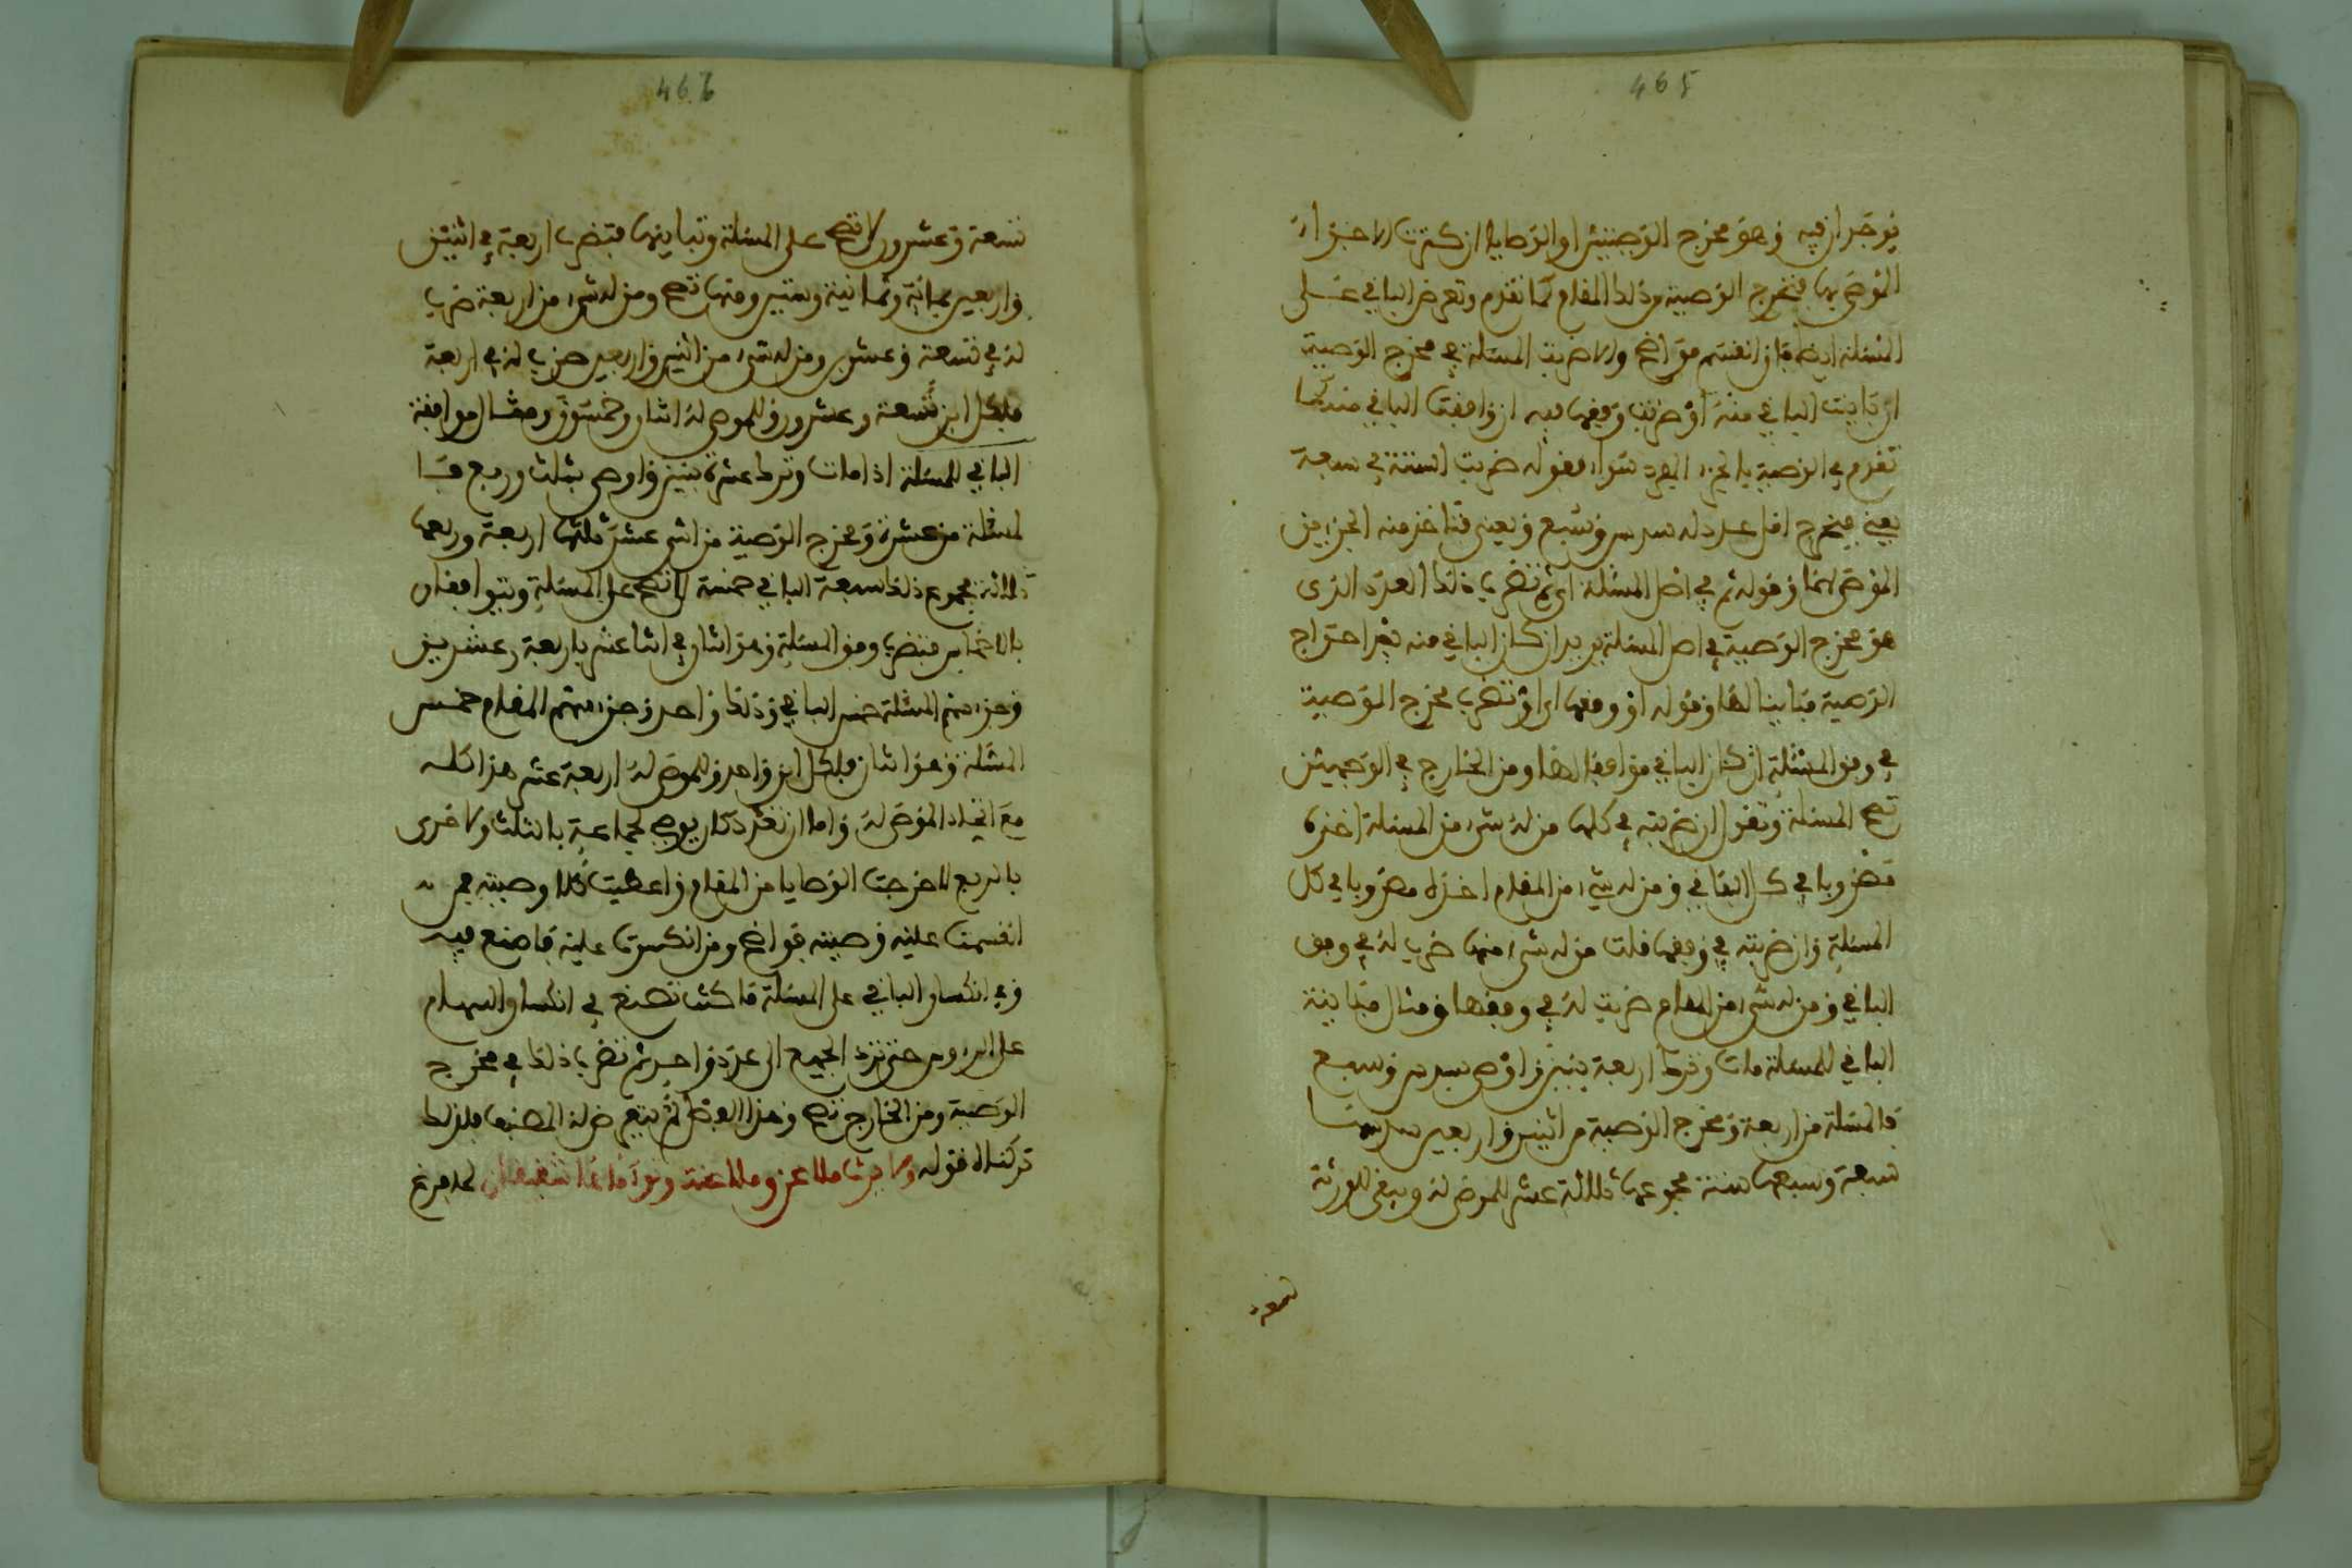 465
يوجدان فيه وهو مخرج الوصيتين او الوصايا ان كثرت الاجزاء
الموصى بها فتخرج الوصية من ذلك المقام كما تقدم وتعرض الباقي على
المسئلة ايضا فان انقسم فواضح والا ضربت المسئلة في مخرج الوصية
ان باينت الباقي منه او ضربت وفقها فيه ان وافقت الباقي منه كما
تقدم في الوصية بالجزء المفرد سواء فقوله ضربت الستة في سبعة
يعني فيخرج اقل عدد له سدس وسبع ويعني فتاخذ منه الجزءين
الموصى بهما وقوله ثم في اصل المسئلة اي ثم تضرب ذلك العدد الذي
هو مخرج الوصية في اصل المسئلة يريد ان كان الباقي منه بعد اخراج
الوصية مباينا لها وقوله او وفقها اي او تضرب مخرج الوصية
في وفق المسئلة ان كان الباقي موافقا لها ومن الخارج في الوجهين
تصح المسئلة وتقول ان ضربته في كلها من له شيء من المسئلة اخذه
مضروبا في كل الباقي ومن له شيء من المقام اخذه مضروبا في كل
المسئلة وان ضربته في وفقها قلت من له شيء منها ضرب له في وفق
الباقي ومن له شيء من المقام ضرب له في وفقها ومثال مباينة
الباقي للمسئلة مات وترك اربعة بنين واوصى بسدس وسبع
فالمسئلة من اربعة ومخرج الوصية من اثنين واربعين سدسها
سبعة وسبعها ستة مجموعها ثلاثة عشر للموصى له ويبقى للورثة
تسعة
466
تسعة وعشرون لا تصح على المسئلة وتباينها فتضرب اربعة في اثنين
واربعين بمائة وثمانية وستين ومنها تصح ومن له شيء من اربعة ضرب
له في تسعة وعشرين ومن له شيء من اثنين واربعين ضرب له في اربعة
فلكل ابن تسعة وعشرون وللموصى له اثنان وخمسون ومثال موافقة
الباقي للمسئلة اذا مات وترك عشرة بنين واوصى بثلث وربع فا
لمسئلة من عشرة ومخرج الوصية من اثني عشر ثلثها اربعة وربعها
ثلاثة مجموع ذلك سبعة الباقي خمسة لا تصح على المسئلة ويتوافقان
بالاخماس فتضرب وفق المسئلة وهو اثنان في اثنا عشر باربعة وعشرين
وجزء سهم المسئلة خمس الباقي وذلك واحد وجزء سهم المقام خمس
المسئلة وهو اثنان فلكل ابن واحد وللموصى له اربعة عشر هذا كله
مع اتحاد الموصى له واما ان تعدد كان يوصي لجماعة بالثلث ولاخرى
بالربع لاخرجت الوصايا من المقام واعطيت كلا وصيته فمن
انقسمت عليه وصيته فواضح ومن انكسرت عليه فاصنع فيه
وفي انكسار الباقي على المسئلة ما كنت تصنع في انكسار السهام
على الرءوس حتى ترد الجميع الى عدد واحد ثم تضرب ذلك في مخرج
الوصية ومن الخارج تصح وهذا الفصل لم يتعرض له المصنف فلذلك
تركناه قوله ولا يرث ملاعن وملاعنة وتوأماها شقيقان لما فرغ